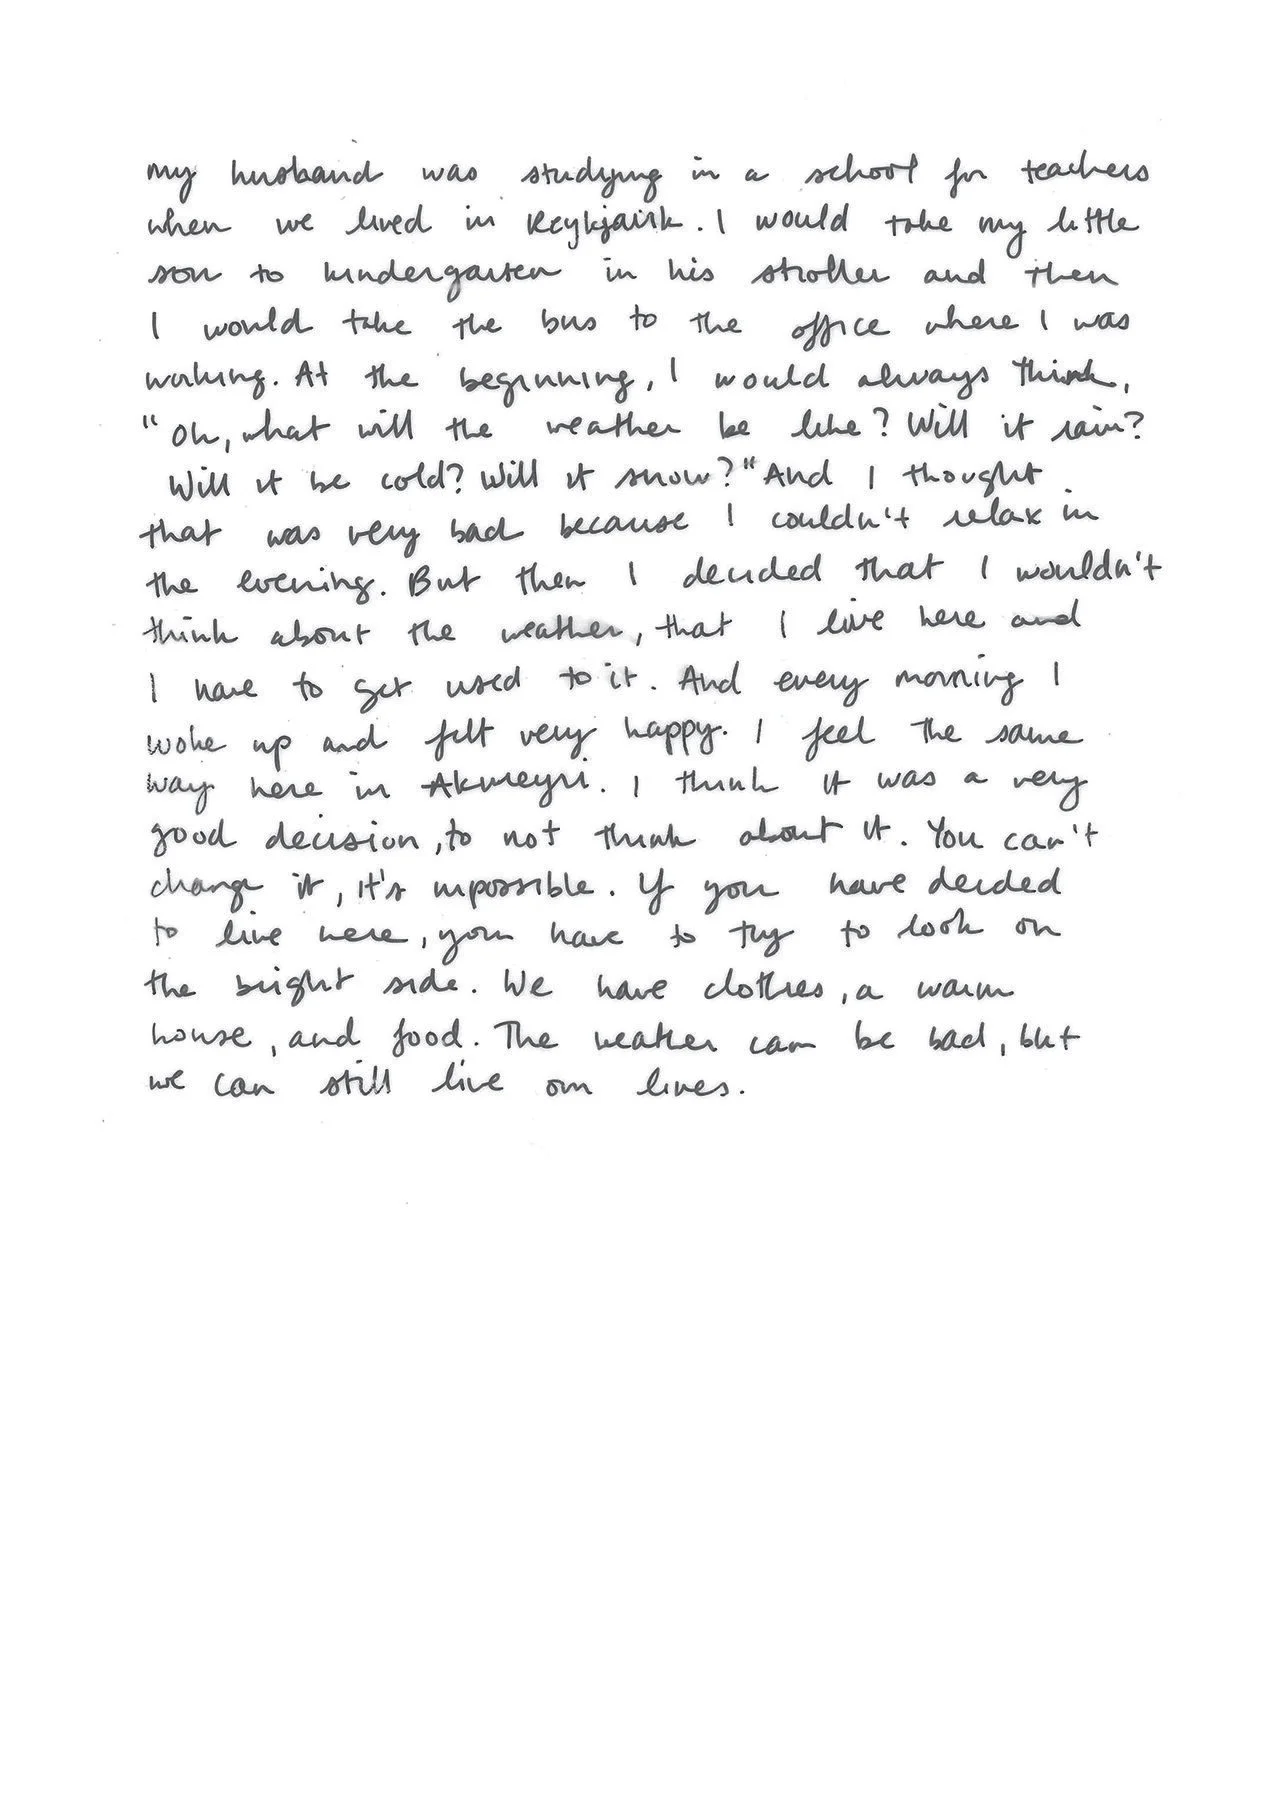 my husband was studying in a school for teachers
when we lived in Reykjavik. I would take my little
son to kindergarten in his stroller and then
I would take the bus to the office where I was
working. At the beginning, I would always think,
"Oh, what will the weather be like? Will it rain?
Will it be cold? Will it snow?" And I thought
that was very bad because I couldn't relax in
the evening. But then I decided that I wouldn't
think about the weather, that I live here and
I have to get used to it. And every morning I
woke up and felt very happy. I feel the same
way here in Akureyri. I think it was a very
good decision, to not think about it. You can't
change it, it's impossible. If you have decided
to live here, you have to try to look on
the bright side. We have clothes, a warm
house, and food. The weather can be bad, but
we can still live our lives.